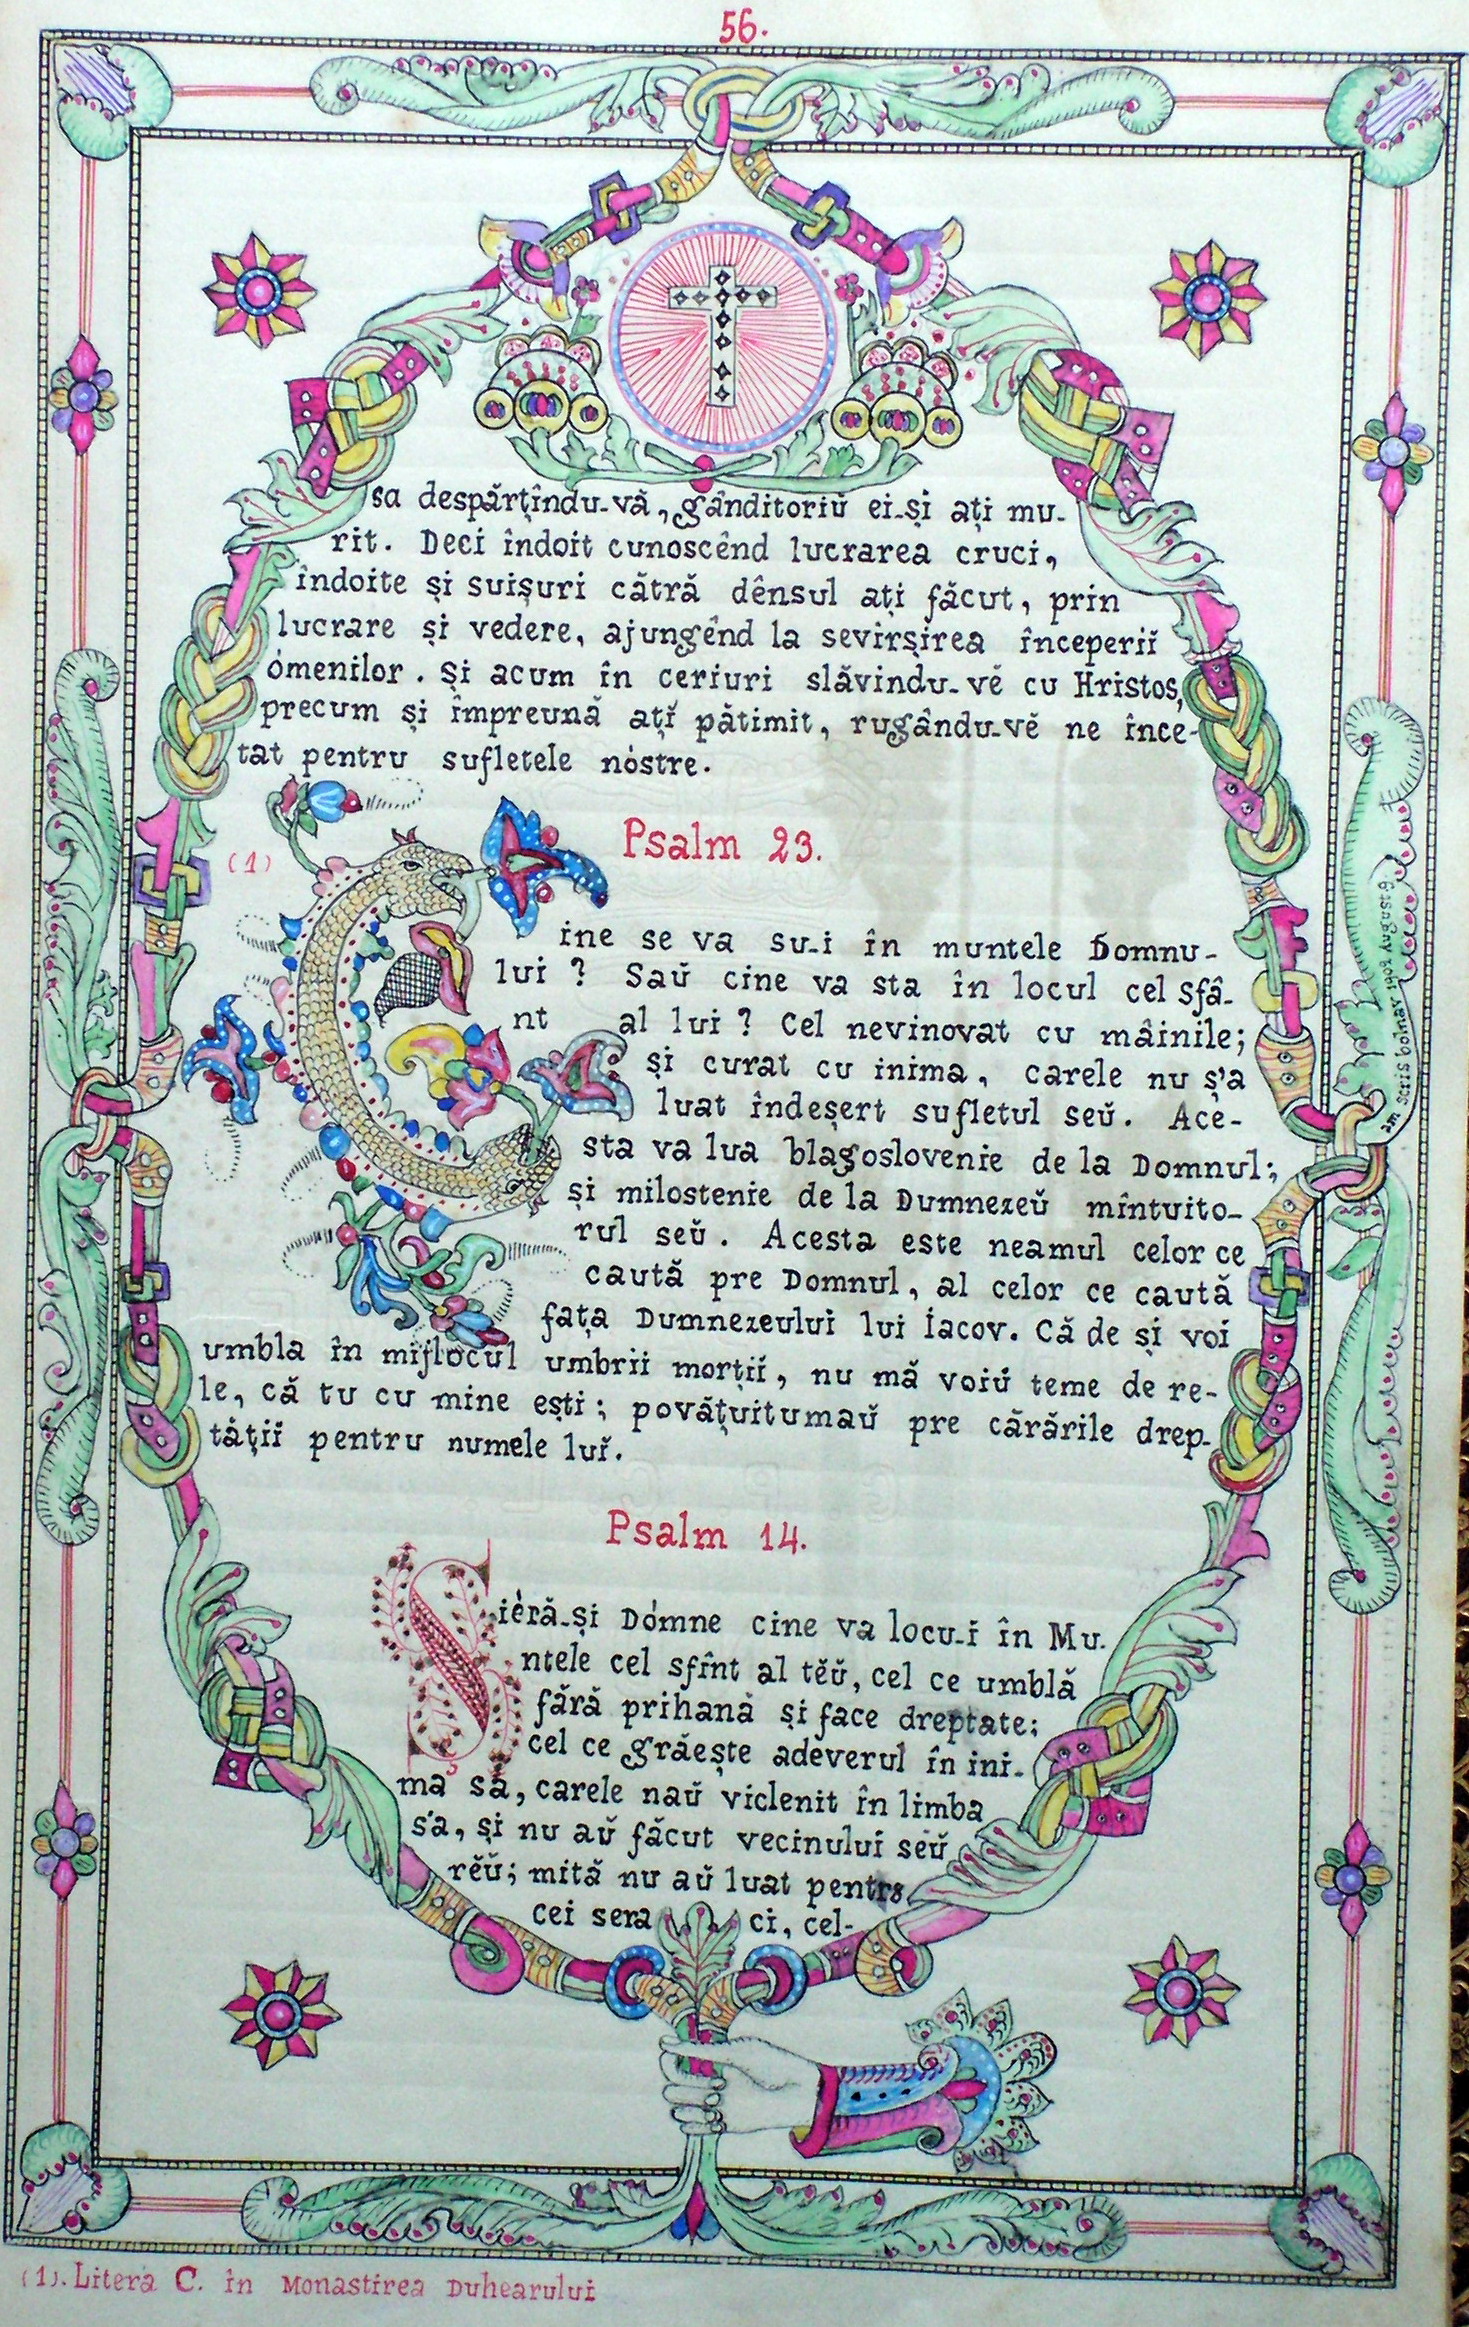 56.
sa despărțîndu-vă, gânditoriŭ ei-și ați mu-
rit. Deci îndoit cunoscênd lucrarea cruci,
îndoite și suișuri cătră dênsul ați făcut, prin
lucrare și vedere, ajungênd la sevîrșirea începeriĭ
ómenilor. Și acum în ceriuri slăvindu-vĕ cu Hristos,
precum și împreună ațĭ pătimit, rugându-vĕ ne înce-
tat pentru sufletele nóstre.
Psalm 23.
(1)
Cine se va su-i în muntele Domnu-
lui? Saŭ cine va sta în locul cel Sfâ-
nt al lui? Cel nevinovat cu mâinile;
și curat cu inima, carele nu ș'a
luat îndeșert sufletul seŭ. Ace-
sta va lua blagoslovenie de la Domnul;
și milostenie de la Dumnezeŭ mîntuito-
rul seŭ. Acesta este neamul celor ce
caută pre Domnul, al celor ce caută
fața Dumnezeului lui Iacov. Că de și voi
umbla în mijlocul umbrii morțiĭ, nu mă voiŭ teme de re-
le, că tu cu mine ești; povățuitumaŭ pre cărările drep-
tățiĭ pentru numele luĭ.
Psalm 14.
Șieră-și Dómne cine va locu-i în Mu-
ntele cel sfînt al tĕŭ, cel ce umblă
fără prihană și face dreptate;
cel ce grăește adeverul în ini-
ma sa, carele naŭ viclenit în limba
sa, și nu aŭ făcut vecinului seŭ
rĕŭ; mită nu aŭ luat pentru
cei sera ci, cel-
am scris bolnav 1904 August 9
(1). Litera C. în Monastirea Duhearului